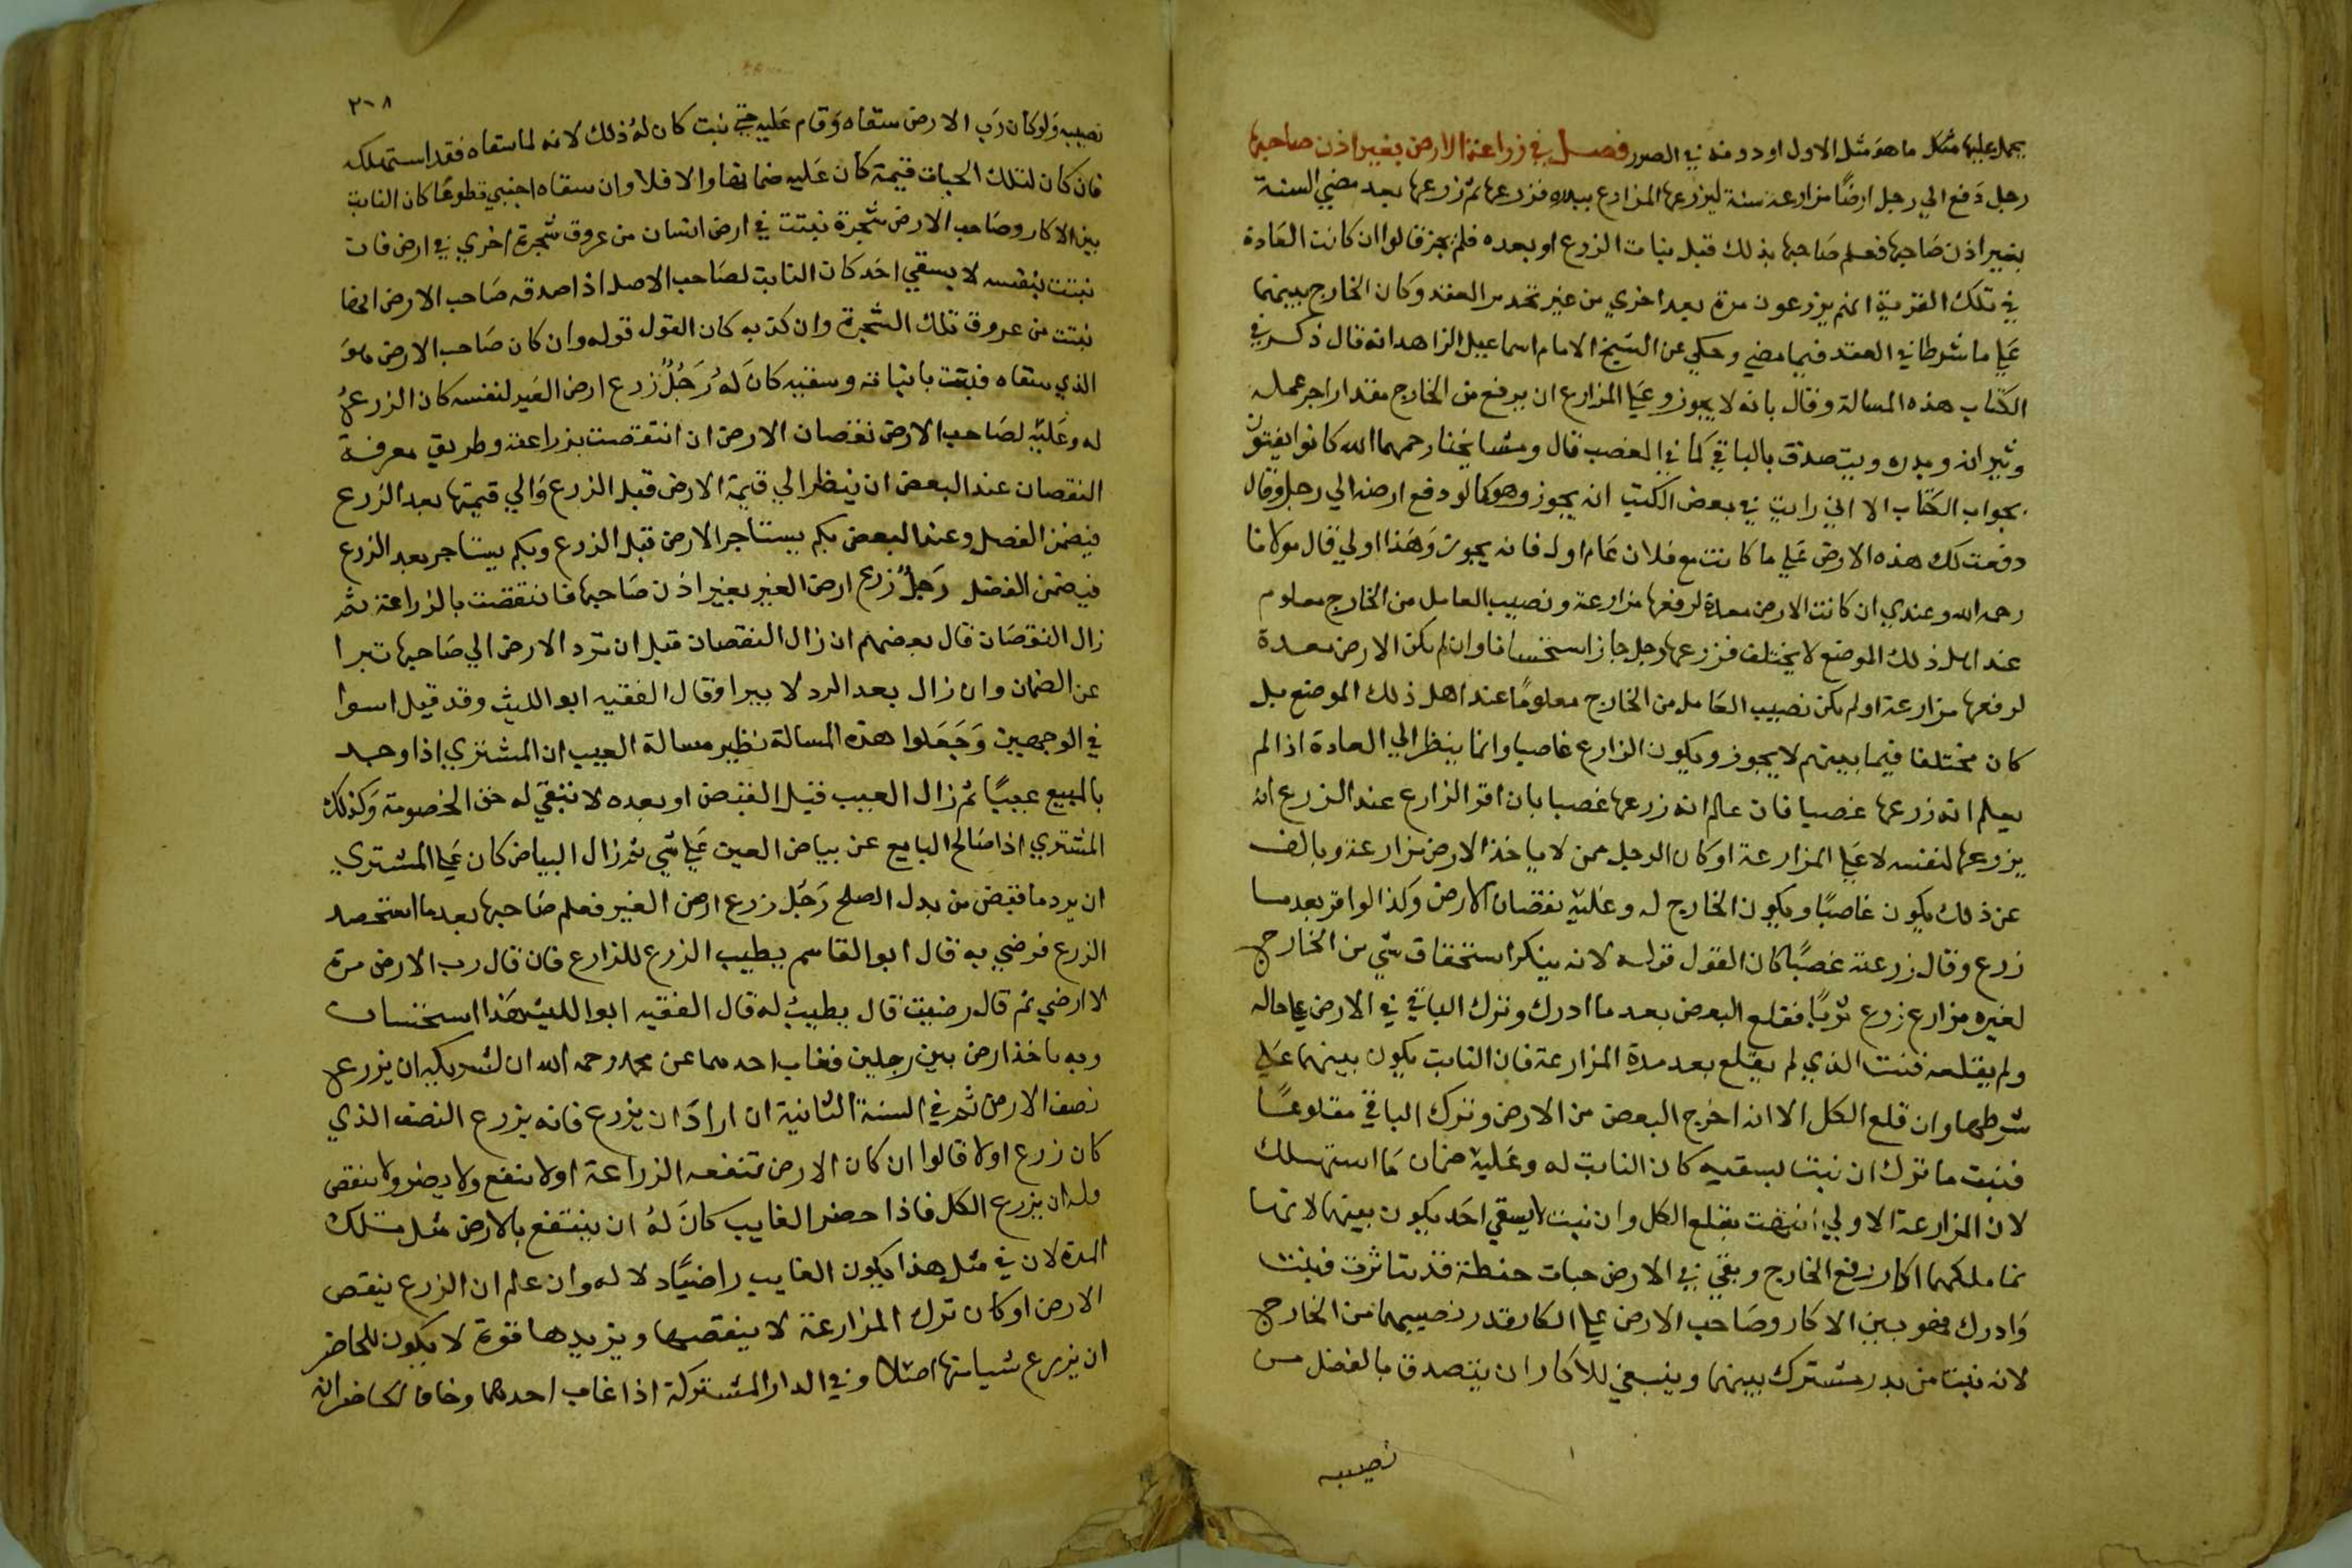 يحمل عليها مثل ما هو مثل الاول او دونه في الصور فصل في زراعة الارض بغير اذن صاحبها
رجل دفع الي رجل ارضا مزارعة سنة ليزرعها المزارع ببذره فزرعها ثم زرعها بعد مضي السنة
بغير اذن صاحبها فعلم صاحبها بذلك قبل نبات الزرع او بعده فلم يجز قالوا ان كانت العادة
في تلك القرية انهم يزرعون مرة بعد اخري من غير تجديد العقد وكان الخارج بينهما
علي ما شرطا في العقد فيما مضي وحكي عن الشيخ الامام اسماعيل الزاهد انه قال ذكر في
الكتاب هذه المسالة وقال بانه لا يجوز وعلي المزارع ان يرفع من الخارج مقدار اجر عمله
وثيرانه وبذره ويتصدق بالباقي كما في الغصب قال ومشايخنا رحمهما الله كانوا يفتون
بجواب الكتاب الا اني رايت في بعض الكتب انه يجوز وهو كما لو دفع ارضه الي رجل وقال
دفعت لك هذه الارض علي ما كانت مع فلان عام اول فانه يجوز وهذا اولي قال مولانا
رحمه الله وعندي ان كانت الارض معدة لرفعها مزارعة ونصيب العامل من الخارج معلوم
عند اهل ذلك الموضع لا يختلف فزرعها رجل جاز استحسانا وان لم يكن الارض معدة
لرفعها مزارعة او لم يكن نصيب العامل من الخارج معلوما عند اهل ذلك الموضع بل
كان مختلفا فيما بينهم لا يجوز ويكون الزارع غاصبا وانما ينظر الي العادة اذا لم
يعلم انه زرعها غصبا فان علم انه زرعها غصبا بان اقر الزارع عند الزرع انه
يزرعها لنفسه لا علي المزارعة او كان الرجل ممن لا ياخذ الارض مزارعة ويانف
عن ذلك يكون غاصبا ويكون الخارج له وعليه نقصان الارض وكذا لو اقر بعد ما
زرع وقال زرعته غصبا كان القول قوله لانه ينكر استحقاق شي من الخارج
لغيره مزارع زرع فقلع البعض بعد ما ادرك وترك الباقي في الارض علي حاله
ولم يقلعه فنبت الذي لم يقلع بعد مدة المزارعة فان النابت يكون بينهما علي
شرطهما وان قلع الكل الا انه اخرج البعض من الارض وترك الباقي مقلوعا
فنبت ما ترك ان نبت بسقيه كان النابت له وعليه ضمان ما استهلك
لان المزارعة الاولي انتهت بقلع الكل وان نبت لا بسقي احد يكون بينهما لانها
نما ملكهما اكار رفع الخارج وبقي في الارض حبات حنطة قد تناثرت فنبتت
وادرك فهو بين الاكار وصاحب الارض علي قدر نصيبهما من الخارج
لانه نبت من بذر مشترك بينهما وينبغي للاكار ان يتصدق بالفضل من
نصيبه
٢٠٨
نصيبه ولو كان رب الارض سقاه وقام عليه حتي نبت كان له ذلك لانه لما سقاه فقد استهلكه
فان كان لتلك الحبات قيمة كان عليه ضمانها والا فلا وان سقاه اجنبي تطوعا كان النابت
بين الاكار وصاحب الارض شجرة نبتت في ارض انسان من عروق شجرة اخري في ارض فان
نبتت بنفسه لا بسقي احد كان النابت لصاحب الاصل اذا صدقه صاحب الارض انها
نبتت من عروق تلك الشجرة وان كذبه كان القول قوله وان كان صاحب الارض هو
الذي سقاه فنبتت بانباته وسقيه كان له رجل زرع ارض الغير لنفسه كان الزرع
له وعليه لصاحب الارض نقصان الارض ان انتقصت بزراعته وطريق معرفة
النقصان عند البعض ان ينظر الي قيمة الارض قبل الزرع والي قيمتها بعد الزرع
فيضمن الفضل وعند البعض بكم يستاجر الارض قبل الزرع وبكم يستاجر بعد الزرع
فيضمن الفضل رجل زرع ارض الغير بغير اذن صاحبها فانتقصت بالزراعة ثم
زال النقصان قال بعضهم ان زال النقصان قبل ان ترد الارض الي صاحبها تبرا
عن الضمان وان زال بعد الرد لا يبرا وقال الفقيه ابو الليث وقد قيل يبرا
في الوجهين وجعلوا هذه المسالة نظير مسالة العيب ان المشتري اذا وجد
بالمبيع عيبا ثم زال العيب قبل القبض او بعده لا تبقي له حق الخصومة وكذلك
المشتري اذا صالح البايع عن بياض العين علي شي ثم زال البياض كان علي المشتري
ان يرد ما قبض من بدل الصلح رجل زرع ارض الغير فعلم صاحبها بعد ما استحصد
الزرع فرضي به قال ابو القاسم يطيب الزرع للزارع فان قال رب الارض مرة
لا ارضي ثم قال رضيت قال يطيب له قال الفقيه ابو الليث هذا استحسان
وبه ناخذ ارض بين رجلين فغاب احدهما عن محمد رحمه الله ان لشريكه ان يزرع
نصف الارض ثم في السنة الثانية ان اراد ان يزرع فانه يزرع النصف الذي
كان زرع اولا قالوا ان كان الارض تنفعه الزراعة او لا تنفع ولا يضر ولا تنقص
فله ان يزرع الكل فاذا حضر الغايب كان له ان ينتفع بالارض مثل تلك
المدة لان في مثل هذا يكون الغايب راضيا دلالة وان علم ان الزرع ينقص
الارض او كان ترك المزارعة لا ينقصها ويزيدها قوة لا يكون للحاضر
ان يزرع شيا منها اصلا وفي الدار المشتركة اذا غاب احدهما وخاف الحاضر انه